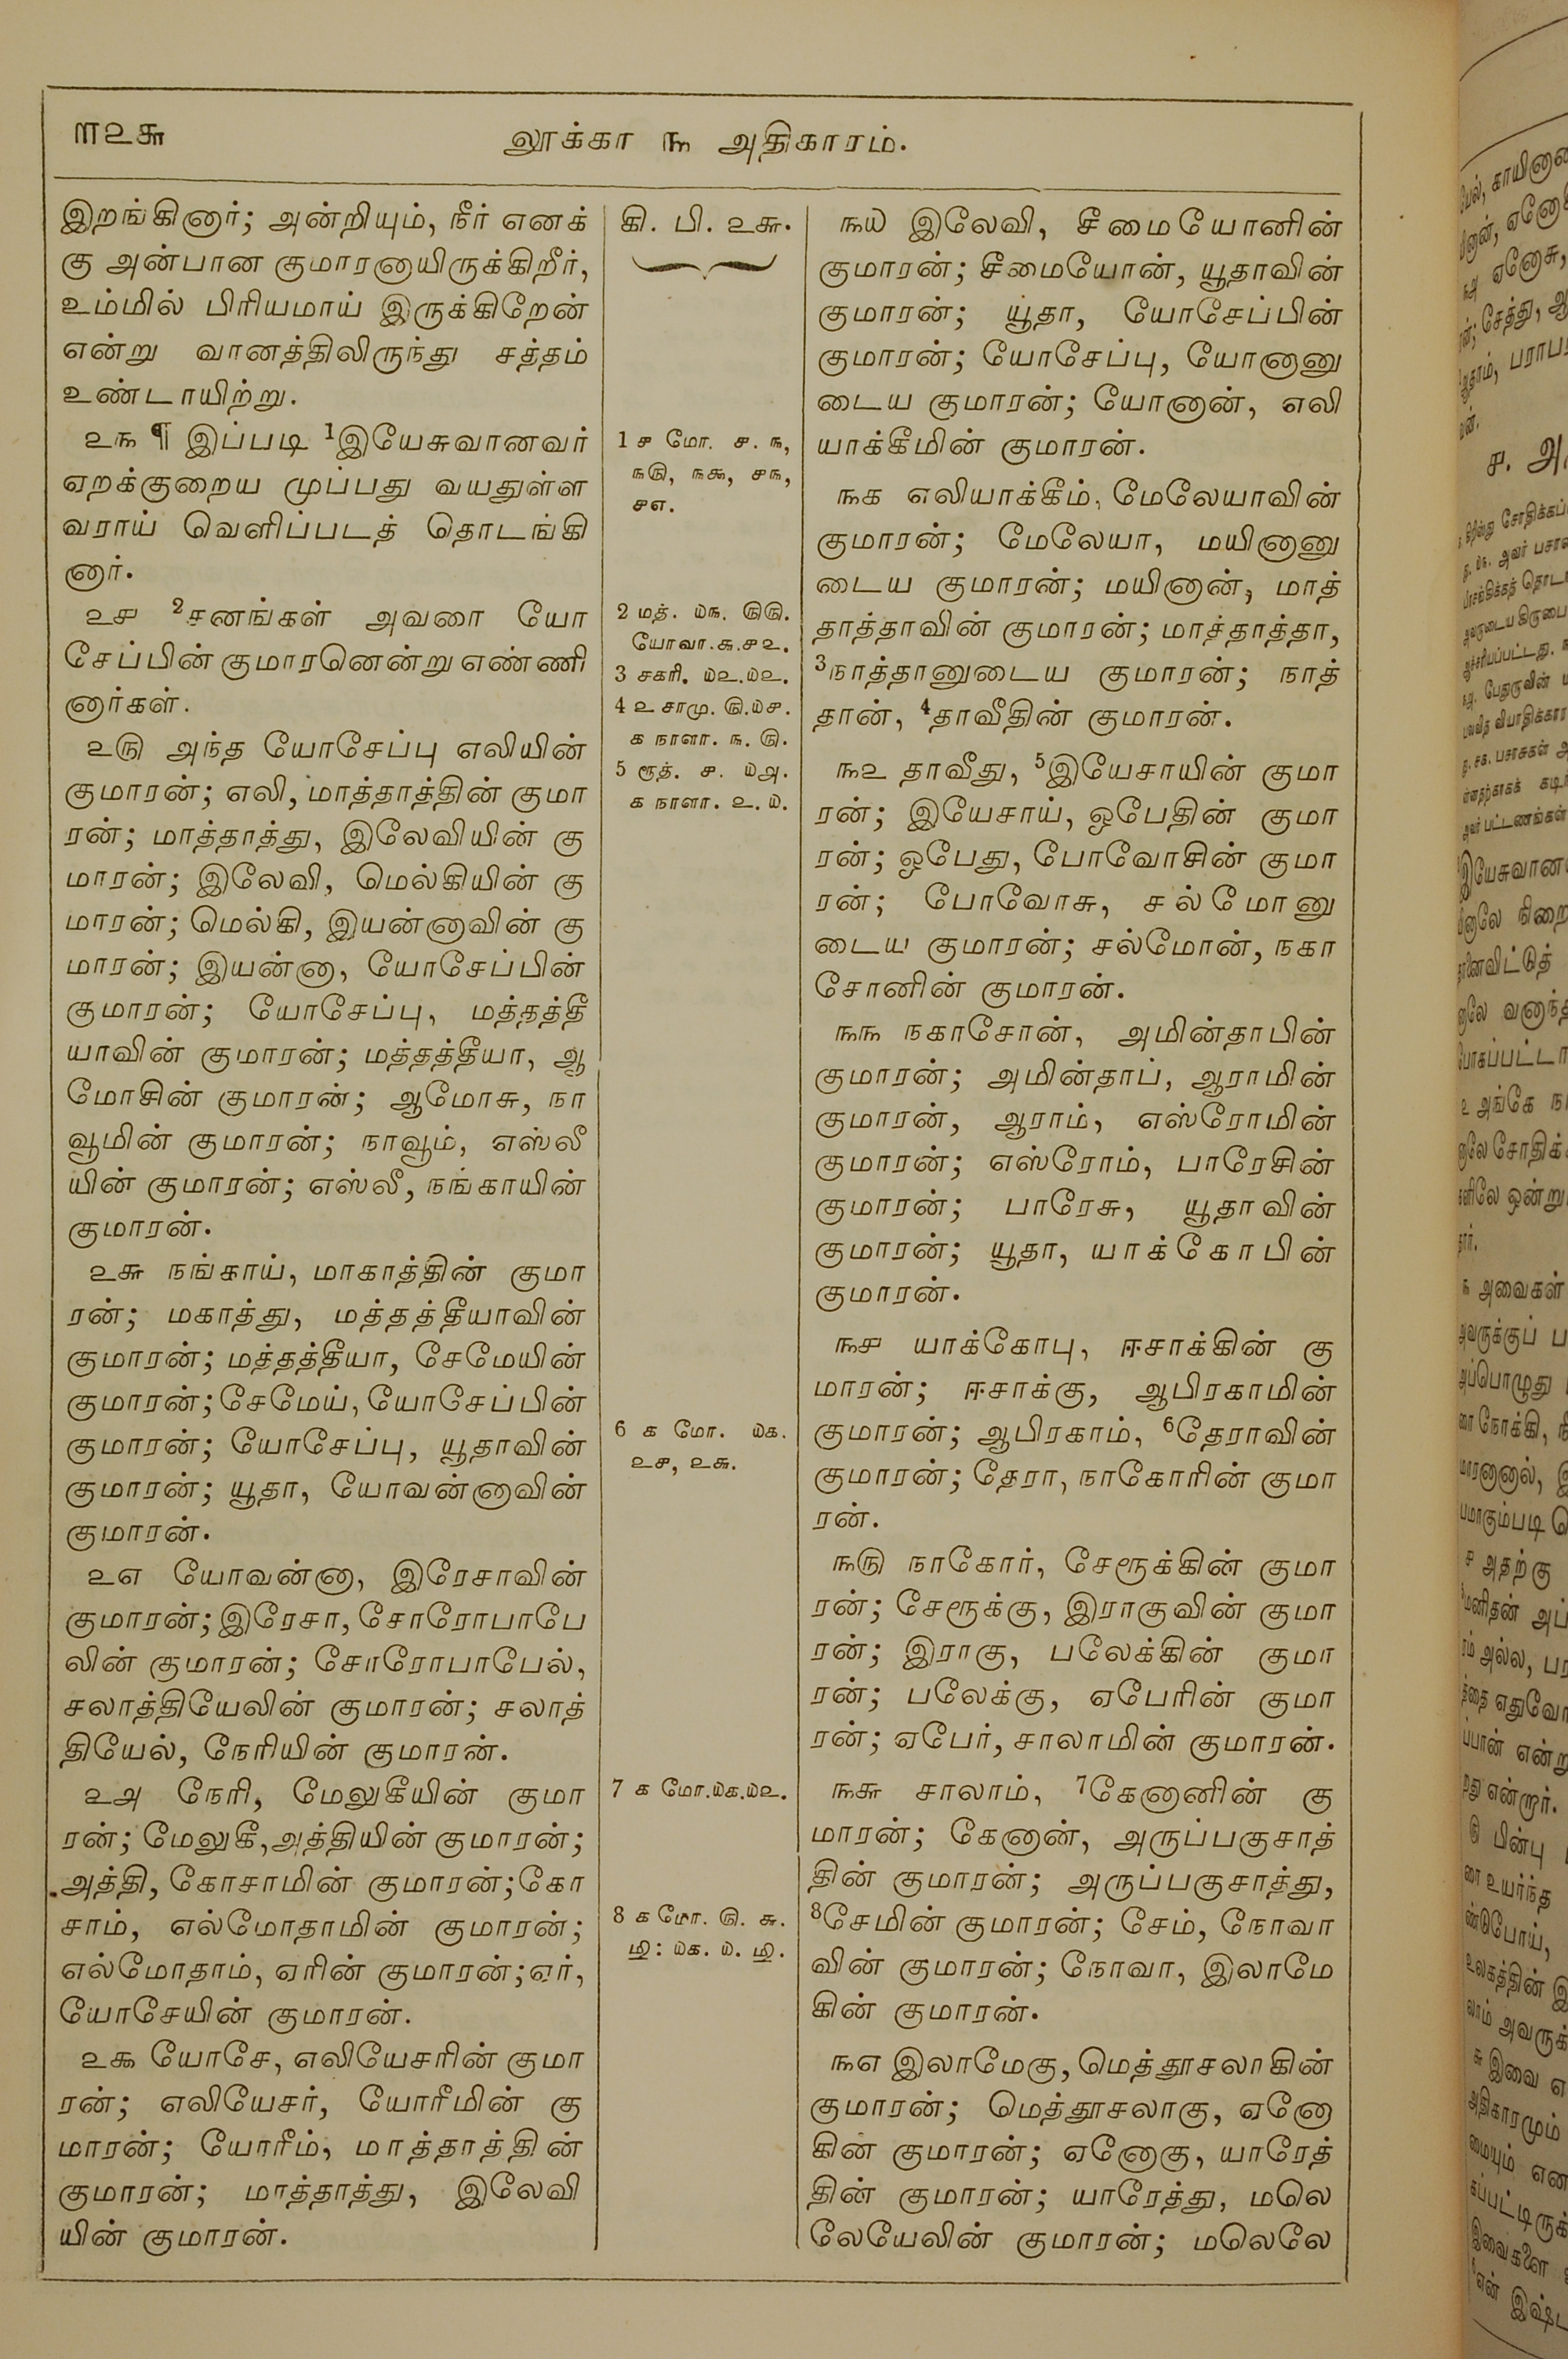 ௱௨௬ லூக்கா ௩ அதிகாரம்.
இறங்கினார்; அன்றியும், நீர் எனக்
கு அன்பான குமாரனாயிருக்கிறீர்,
உம்மில் பிரியமாய் இருக்கிறேன்
என்று வானத்திலிருந்து சத்தம்
உண்டாயிற்று.
௨௩ ¶ இப்படி ¹இயேசுவானவர்
ஏறக்குறைய முப்பது வயதுள்ள
வராய் வெளிப்படத் தொடங்கி
னார்.
௨௪ ²சனங்கள் அவரை யோ
சேப்பின் குமாரனென்று எண்ணி
னார்கள்.
௨௫ அந்த யோசேப்பு எலியின்
குமாரன்; எலி, மாத்தாத்தின் குமா
ரன்; மாத்தாத்து, இலேவியின் கு
மாரன்; இலேவி, மெல்கியின் கு
மாரன்; மெல்கி, இயன்னாவின் கு
மாரன்; இயன்னா, யோசேப்பின்
குமாரன்; யோசேப்பு, மத்தத்தீ
யாவின் குமாரன்; மத்தத்தீயா, ஆ
மோசின் குமாரன்; ஆமோசு, நா
வூமின் குமாரன்; நாவூம், எஸ்லீ
யின் குமாரன்; எஸ்லீ, நங்காயின்
குமாரன்.
௨௬ நங்காய், மாகாத்தின் குமா
ரன்; மகாத்து, மத்தத்தீயாவின்
குமாரன்; மத்தத்தீயா, சேமேயின்
குமாரன்; சேமேய், யோசேப்பின்
குமாரன்; யோசேப்பு, யூதாவின்
குமாரன்; யூதா, யோவன்னாவின்
குமாரன்.
௨௭ யோவன்னா, இரேசாவின்
குமாரன்; இரேசா, சோரோபாபே
லின் குமாரன்; சோரோபாபேல்,
சலாத்தியேலின் குமாரன்; சலாத்
தியேல், நேரியின் குமாரன்.
௨௮ நேரி, மேலுகீயின் குமா
ரன்; மேலுகீ, அத்தியின் குமாரன்;
அத்தி, கோசாமின் குமாரன்; கோ
சாம், எல்மோதாமின் குமாரன்;
எல்மோதாம், ஏரின் குமாரன்; ஏர்,
யோசேயின் குமாரன்.
௨௯ யோசே, எலியேசரின் குமா
ரன்; எலியேசர், யோரீமின் கு
மாரன்; யோரீம், மாத்தாத்தின்
குமாரன்; மாத்தாத்து, இலேவி
யின் குமாரன்.
கி. பி. ௨௬.
1 ௪ மோ. ௪. ௩,
௩௫, ௩௯, ௪௩,
௪௭.
2 மத். ௰௩. ௫௫.
யோவா. ௬. ௪௨.
3 சகரி. ௰௨. ௰௨.
4 ௨ சாமு. ௫. ௰௪.
௧ நாளா. ௩. ௫.
5 ரூத். ௪. ௰௮.
௧ நாளா. ௨. ௰.
6 ௧ மோ. ௰௧.
௨௪, ௨௬.
7 ௧ மோ. ௰௧. ௰௨.
8 ௧ மோ. ௫. ௬.
௰: ௰௧. ௰.
௩௰ இலேவி, சீமையோனின்
குமாரன்; சீமையோன், யூதாவின்
குமாரன்; யூதா, யோசேப்பின்
குமாரன்; யோசேப்பு, யோனானு
டைய குமாரன்; யோனான், எலி
யாக்கீமின் குமாரன்.
௩௧ எலியாக்கீம், மேலேயாவின்
குமாரன்; மேலேயா, மயினானு
டைய குமாரன்; மயினான், மாத்
தாத்தாவின் குமாரன்; மாத்தாத்தா,
³நாத்தானுடைய குமாரன்; நாத்
தான், ⁴தாவீதின் குமாரன்.
௩௨ தாவீது, ⁵இயேசாயின் குமா
ரன்; இயேசாய், ஓபேதின் குமா
ரன்; ஓபேது, போவோசின் குமா
ரன்; போவோசு, சல்மோனு
டைய குமாரன்; சல்மோன், நகா
சோனின் குமாரன்.
௩௩ நகாசோன், அமின்தாபின்
குமாரன்; அமின்தாப், ஆராமின்
குமாரன், ஆராம், எஸ்ரோமின்
குமாரன்; எஸ்ரோம், பாரேசின்
குமாரன்; பாரேசு, யூதாவின்
குமாரன்; யூதா, யாக்கோபின்
குமாரன்.
௩௪ யாக்கோபு, ஈசாக்கின் கு
மாரன்; ஈசாக்கு, ஆபிரகாமின்
குமாரன்; ஆபிரகாம், ⁶தேராவின்
குமாரன்; தேரா, நாகோரின் குமா
ரன்.
௩௫ நாகோர், சேரூக்கின் குமா
ரன்; சேரூக்கு, இராகுவின் குமா
ரன்; இராகு, பலேக்கின் குமா
ரன்; பலேக்கு, ஏபேரின் குமா
ரன்; ஏபேர், சாலாமின் குமாரன்.
௩௬ சாலாம், ⁷கேனானின் கு
மாரன்; கேனான், அருப்பகுசாத்
தின் குமாரன்; அருப்பகுசாத்து,
⁸சேமின் குமாரன்; சேம், நோவா
வின் குமாரன்; நோவா, இலாமே
கின் குமாரன்.
௩௭ இலாமேகு, மெத்தூசலாகின்
குமாரன்; மெத்தூசலாகு, ஏனோ
கின் குமாரன்; ஏனோகு, யாரேத்
தின் குமாரன்; யாரேத்து, மலெ
லேயேலின் குமாரன்; மலெலே